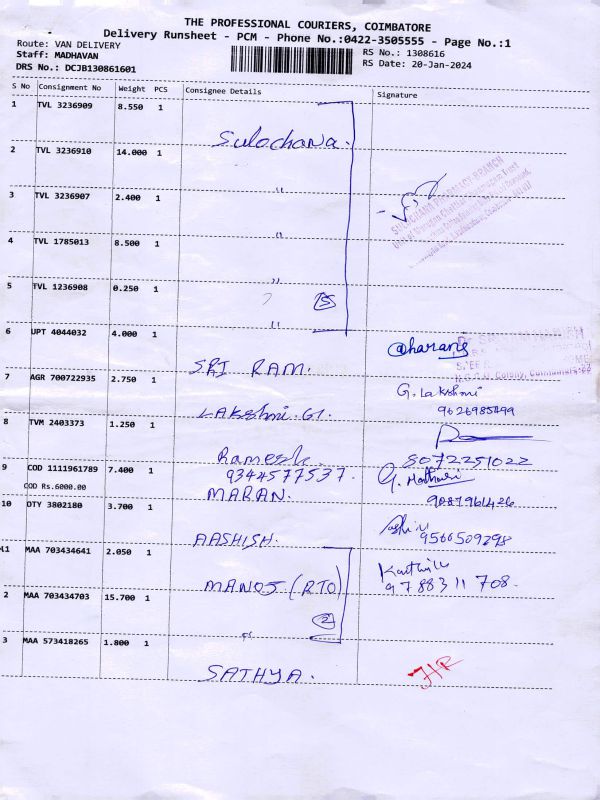 THE PROFESSIONAL COURIERS, COIMBATORE
Delivery Runsheet - PCM - Phone No.:0422-3505555 - Page No.:1
Route: VAN DELIVERY
Staff: MADHAVAN
DRS No.: DCJB130861601
RS No.: 1308616
RS Date: 20-Jan-2024
S No Consignment No Weight PCS Consignee Details Signature
1 TVL 3236909 8.550 1
Sulochana.
2 TVL 3236910 14.000 1
"
3 TVL 3236907 2.400 1
"
4 TVL 1785013 8.500 1
"
5 TVL 1236908 0.250 1
" 5
6 UPT 4044032 4.000 1
SRI RAM.
7 AGR 700722935 2.750 1
LAKSHMI. G. G. Lakshmi
9626985899
8 TVM 2403373 1.250 1
Ramesh 8072251022
9344577537.
9 COD 1111961789 7.400 1
COD Rs.6000.00
MARAN. 9087961426
10 DTY 3802180 3.700 1
AASHISH. 9566509298
11 MAA 703434641 2.050 1
MANOJ (RTO) 9788311708
2 MAA 703434703 15.700 1
" 2
3 MAA 573418265 1.800 1
SATHYA.